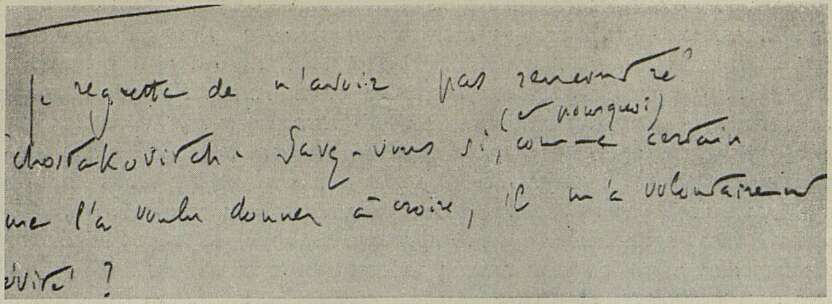 Je regrette de n'avoir pas rencontré
(et pourquoi)
chostakovitch. Savez-vous si, comme certain
me l'a voulu donner à croire, il m'a volontairement
évité ?